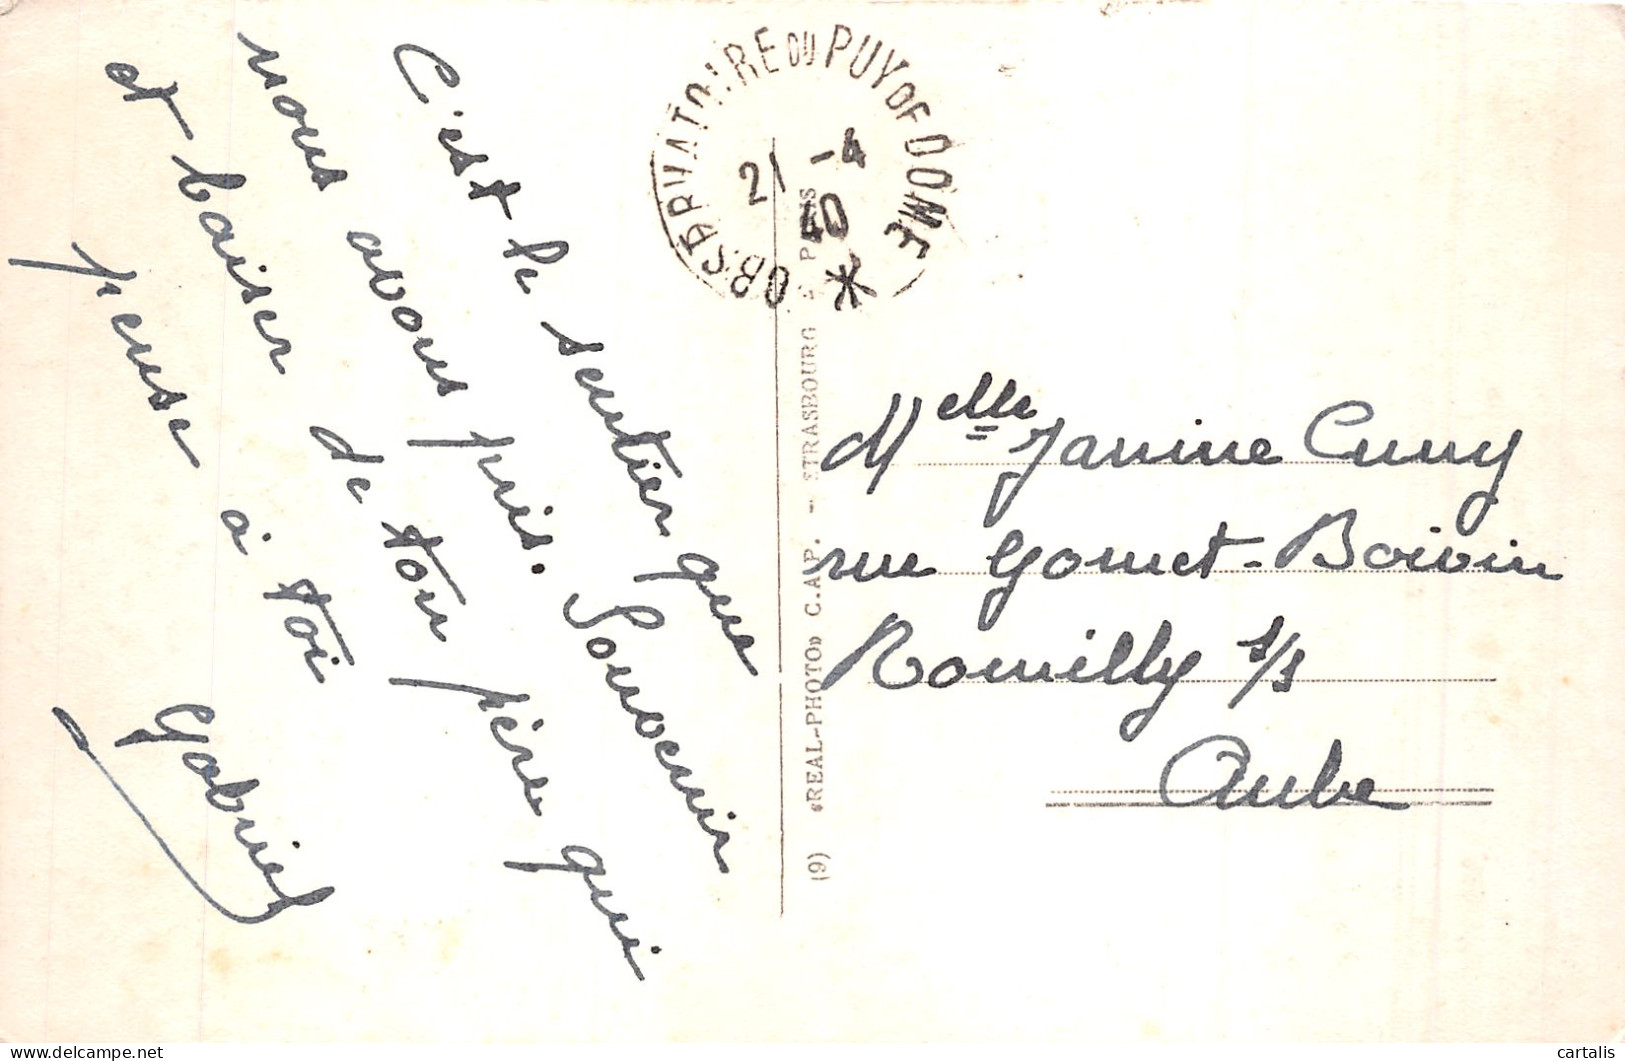 C'est le sentier que
nous avons pris. Souvenir
et baiser de ton père qui
pense à toi
Gabriel
OBSERVATOIRE DU PUY DE DOME
21 -4
40
(9) «REAL-PHOTO» C.A.P. - STRASBOURG - PARIS
Melle Janine Cuny
rue Gornet-Boivin
Romilly s/s
Aube
cartalis
delcampe.net